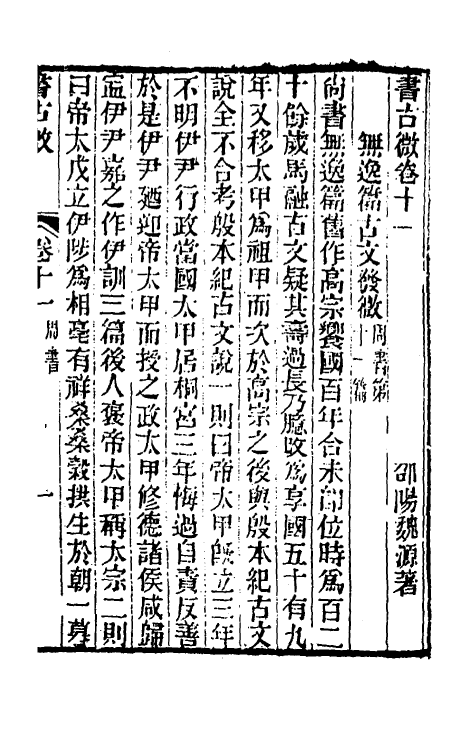 書古微卷十一
邵陽魏源著
無逸篇古文發微周書第十一篇
尚書無逸篇舊作高宗饗國百年合未卽位時爲百二
十餘歲馬融古文疑其壽過長乃臆改爲享國五十有九
年又移太甲爲祖甲而次於高宗之後與殷本紀古文
說全不合考殷本紀古文說一則曰帝太甲旣立三年
不明伊尹行政當國太甲居桐宮三年悔過自責反善
於是伊尹廼迎帝太甲而授之政太甲修德諸侯咸歸
伊尹嘉之作伊訓三篇後人襃帝太甲稱太宗二則
曰帝太戊立伊陟爲相亳有祥桑桑榖拱生於朝一暮
書古微
卷十一 周書
一